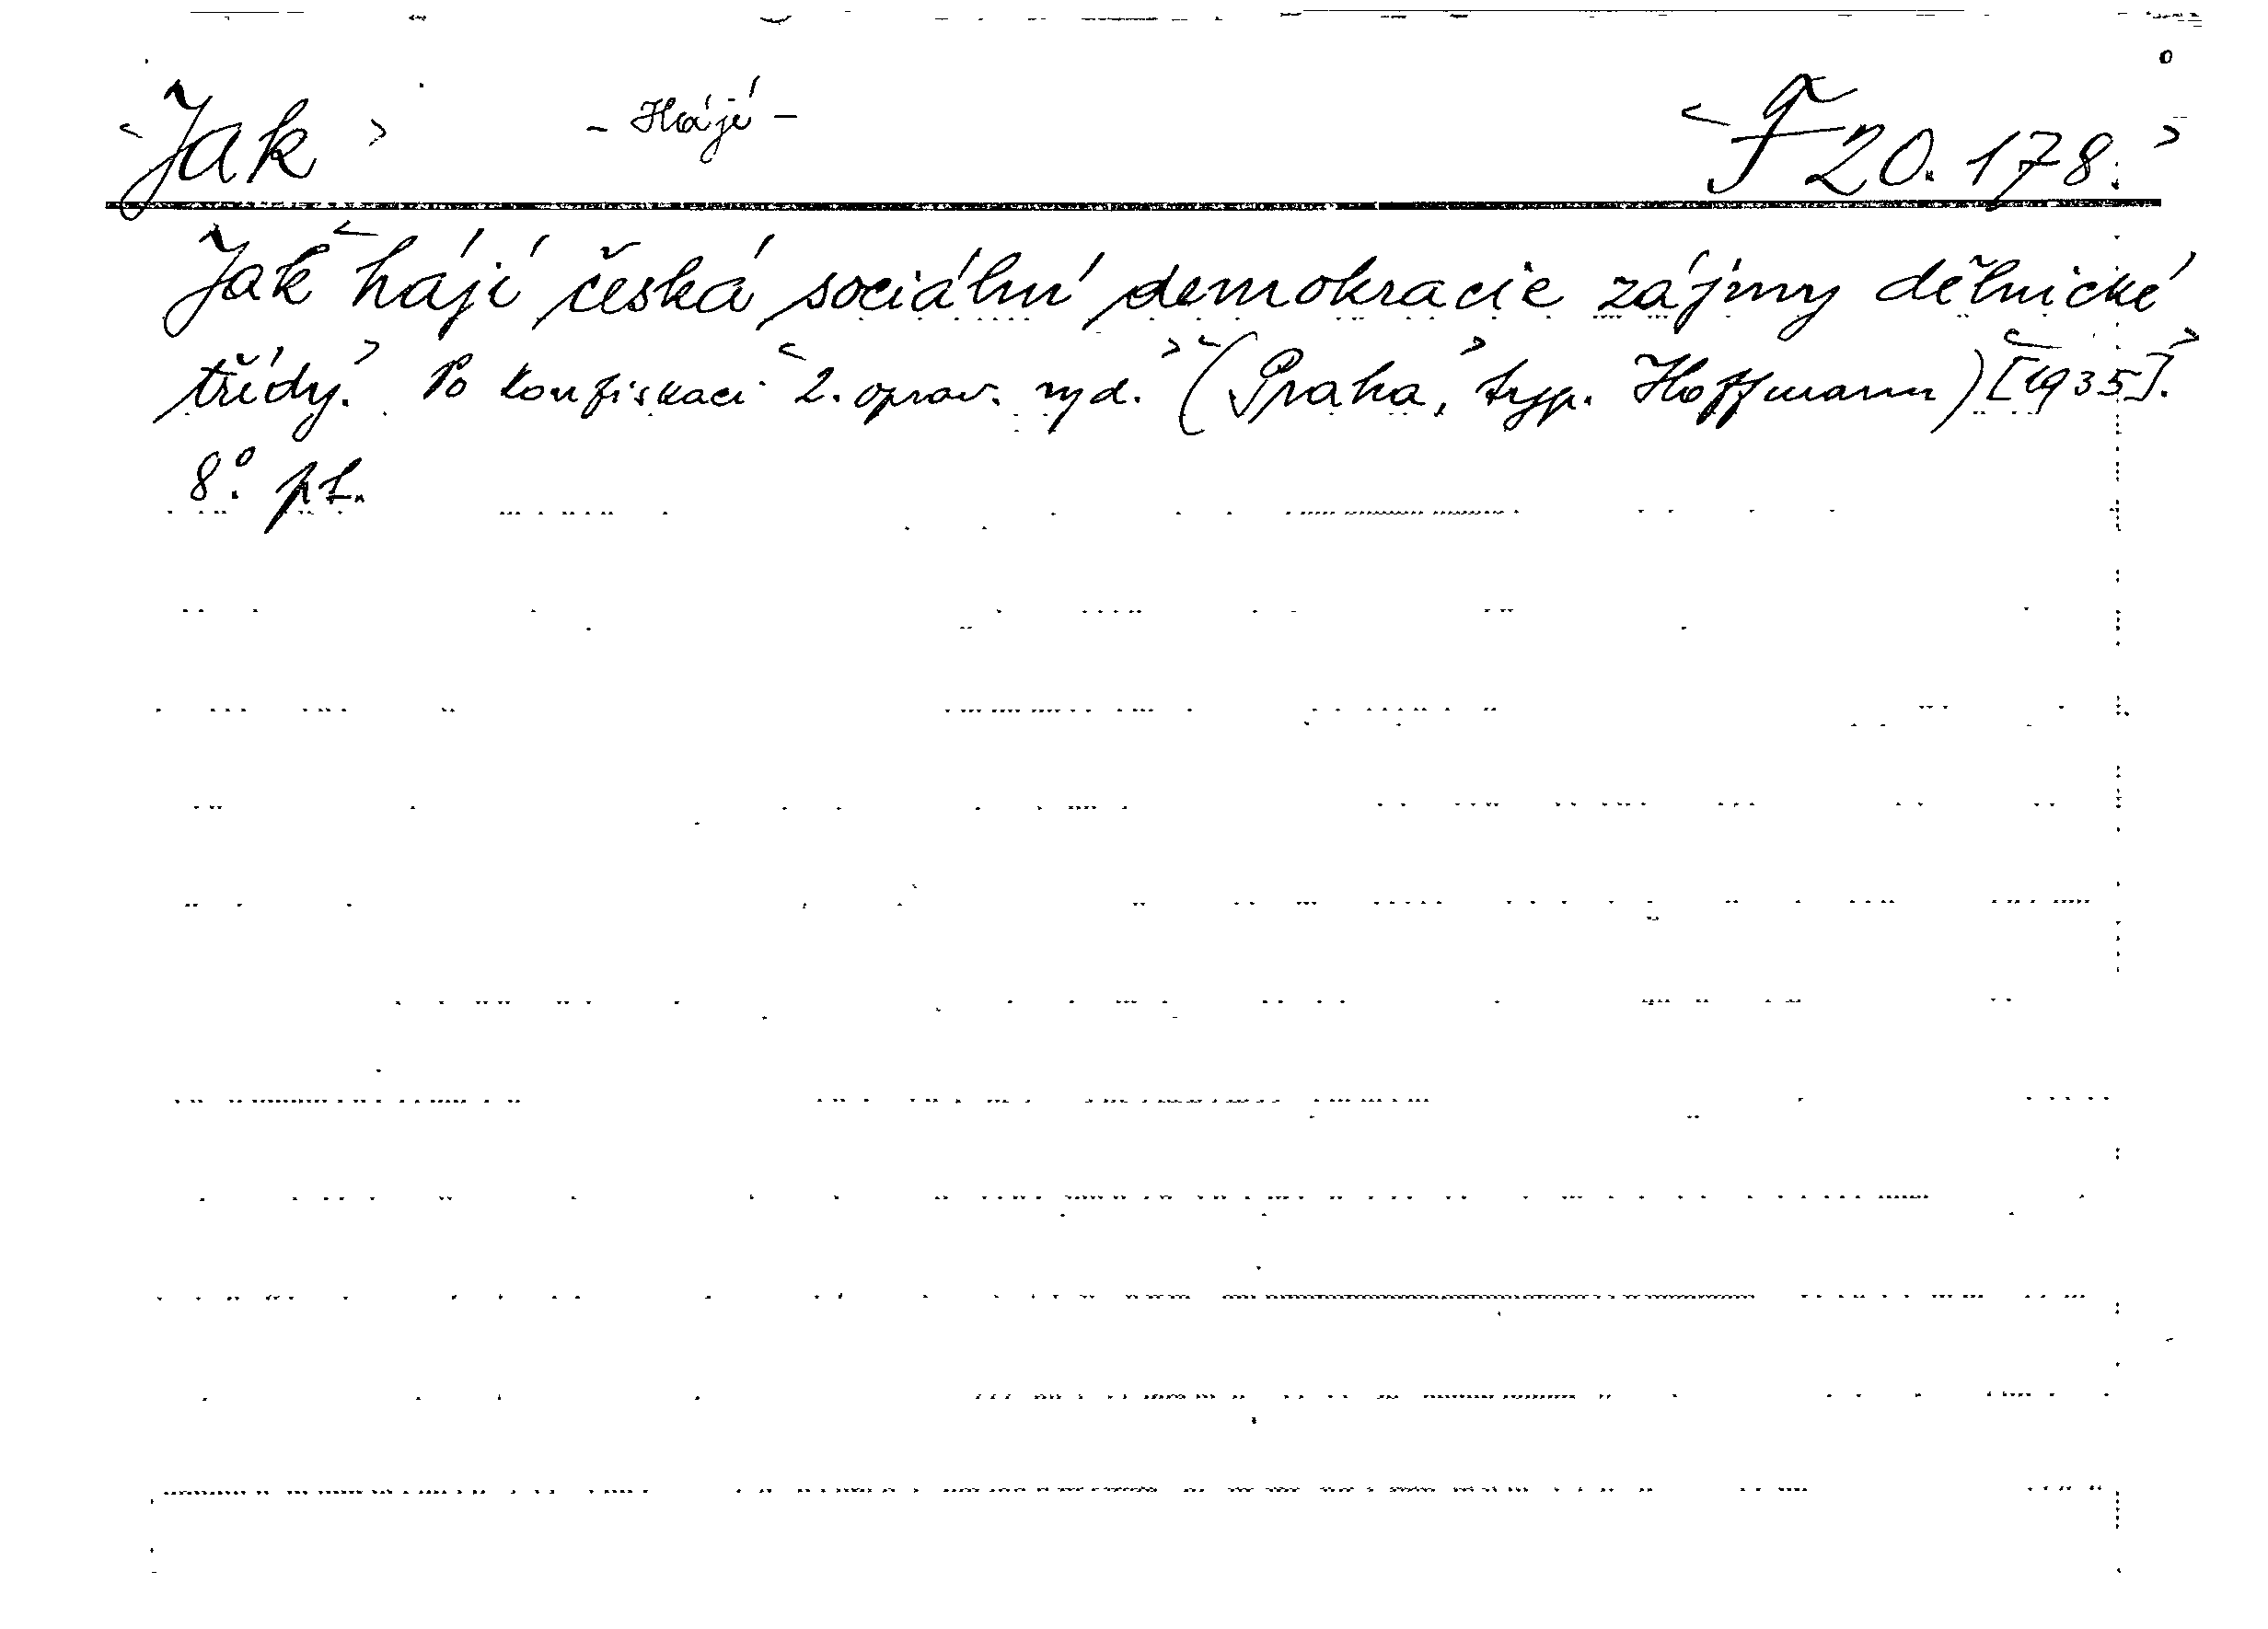 ‹Jak› - Hájí - ‹F 20.178.›
Jak ‹hájí česká sociální demokracie zájmy dělnické
třídy.› Po konfiskaci ‹2. oprav. vyd.› ‹(Praha,› typ. Hoffmann) ‹[1935].›
8°. pt.